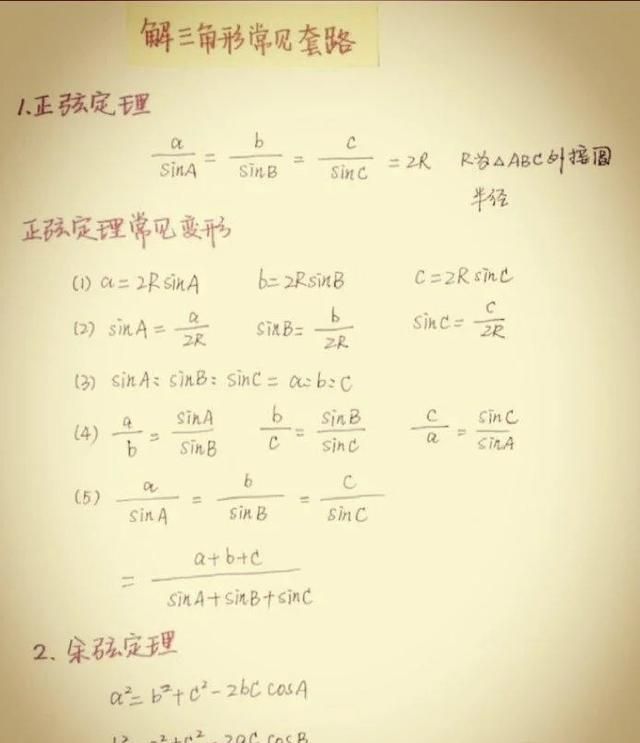 解三角形常见套路
1.正弦定理
a/sinA = b/sinB = c/sinC = 2R R为△ABC外接圆
半径
正弦定理常见变形
(1) a=2RsinA b=2RsinB c=2RsinC
(2) sinA=a/2R sinB=b/2R sinC=c/2R
(3) sinA:sinB:sinC=a:b:c
(4) a/b=sinA/sinB b/c=sinB/sinC c/a=sinC/sinA
(5) a/sinA = b/sinB = c/sinC
= a+b+c/sinA+sinB+sinC
2.余弦定理
a²=b²+c²-2bc cosA
b²=a²+c²-2ac cosB